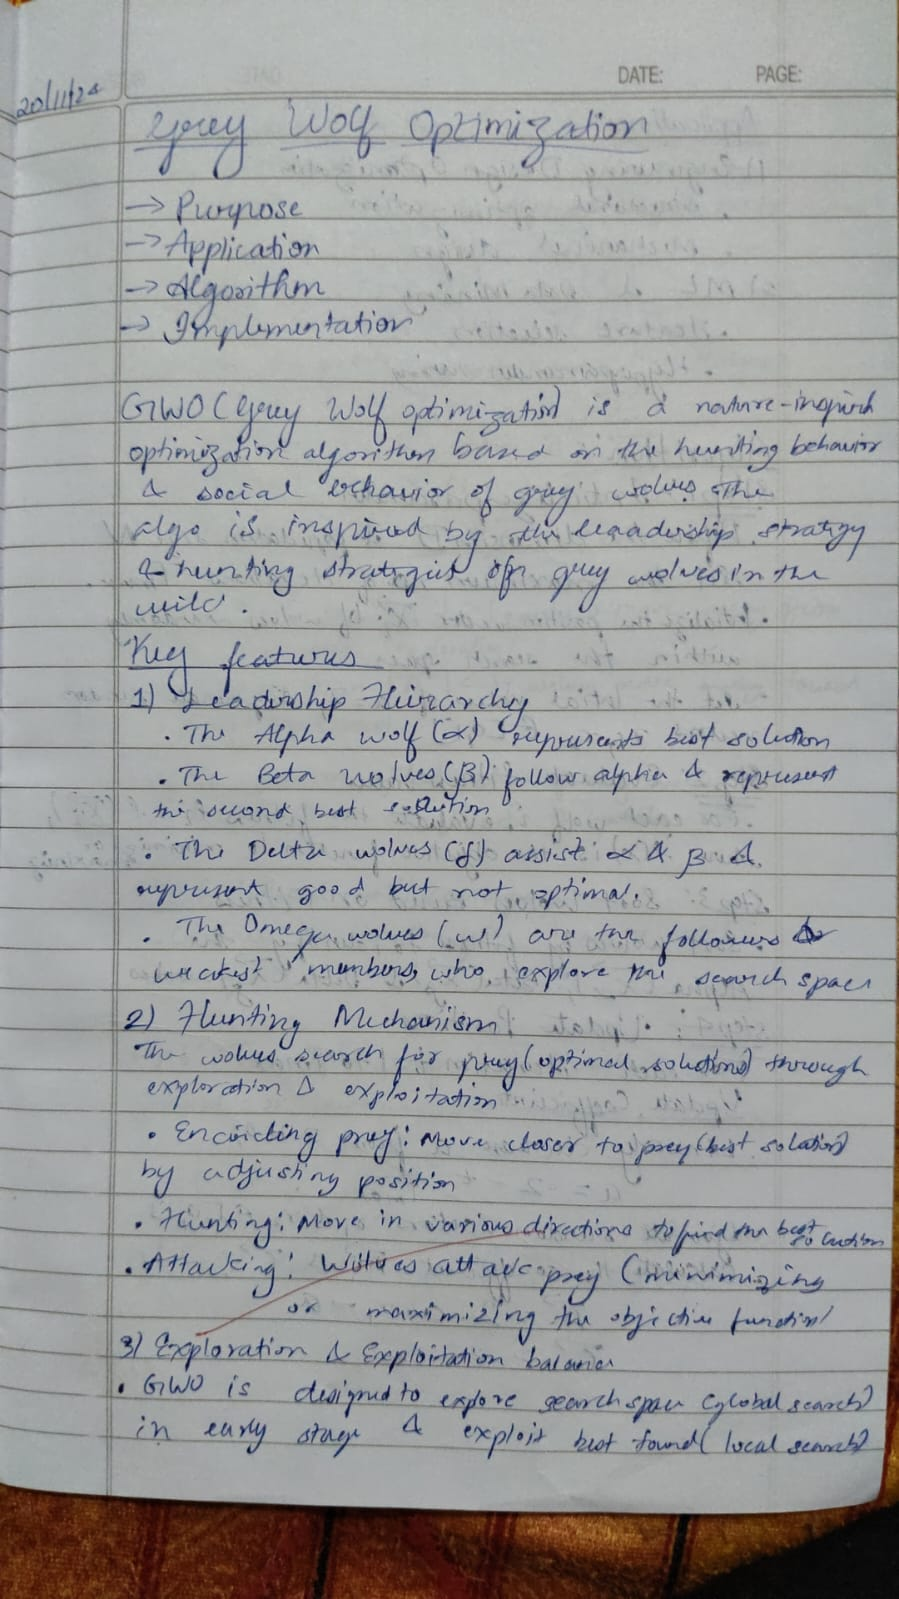 DATE: PAGE:
20/11/24
Grey Wolf Optimization
→ Purpose
→ Application
→ Algorithm
→ Implementation
GWO (Grey Wolf optimization) is a nature-inspired
optimization algorithm based on the hunting behavior
& social behavior of grey wolves. The
algo is inspired by the leadership strategy
& hunting strategies of grey wolves in the
wild.
Key features
1) Leadership Hierarchy
• The Alpha wolf (α) represents best solution
• The Beta wolves (β) follow alpha & represent
the second best solution
• The Delta wolves (δ) assist α & β &
represent good but not optimal.
• The Omega wolves (ω) are the followers
weakest members, who explore the search space
2) Hunting Mechanism
The wolves search for prey (optimal solutions) through
exploration & exploitation
• Encircling prey: Move closer to prey (best solution)
by adjusting position
• Hunting: Move in various directions to find the best solution
• Attacking: Wolves attack prey (minimizing
or maximizing the objective function)
3) Exploration & Exploitation balance
• GWO is designed to explore search space (global search)
in early stage & exploit best found (local search)